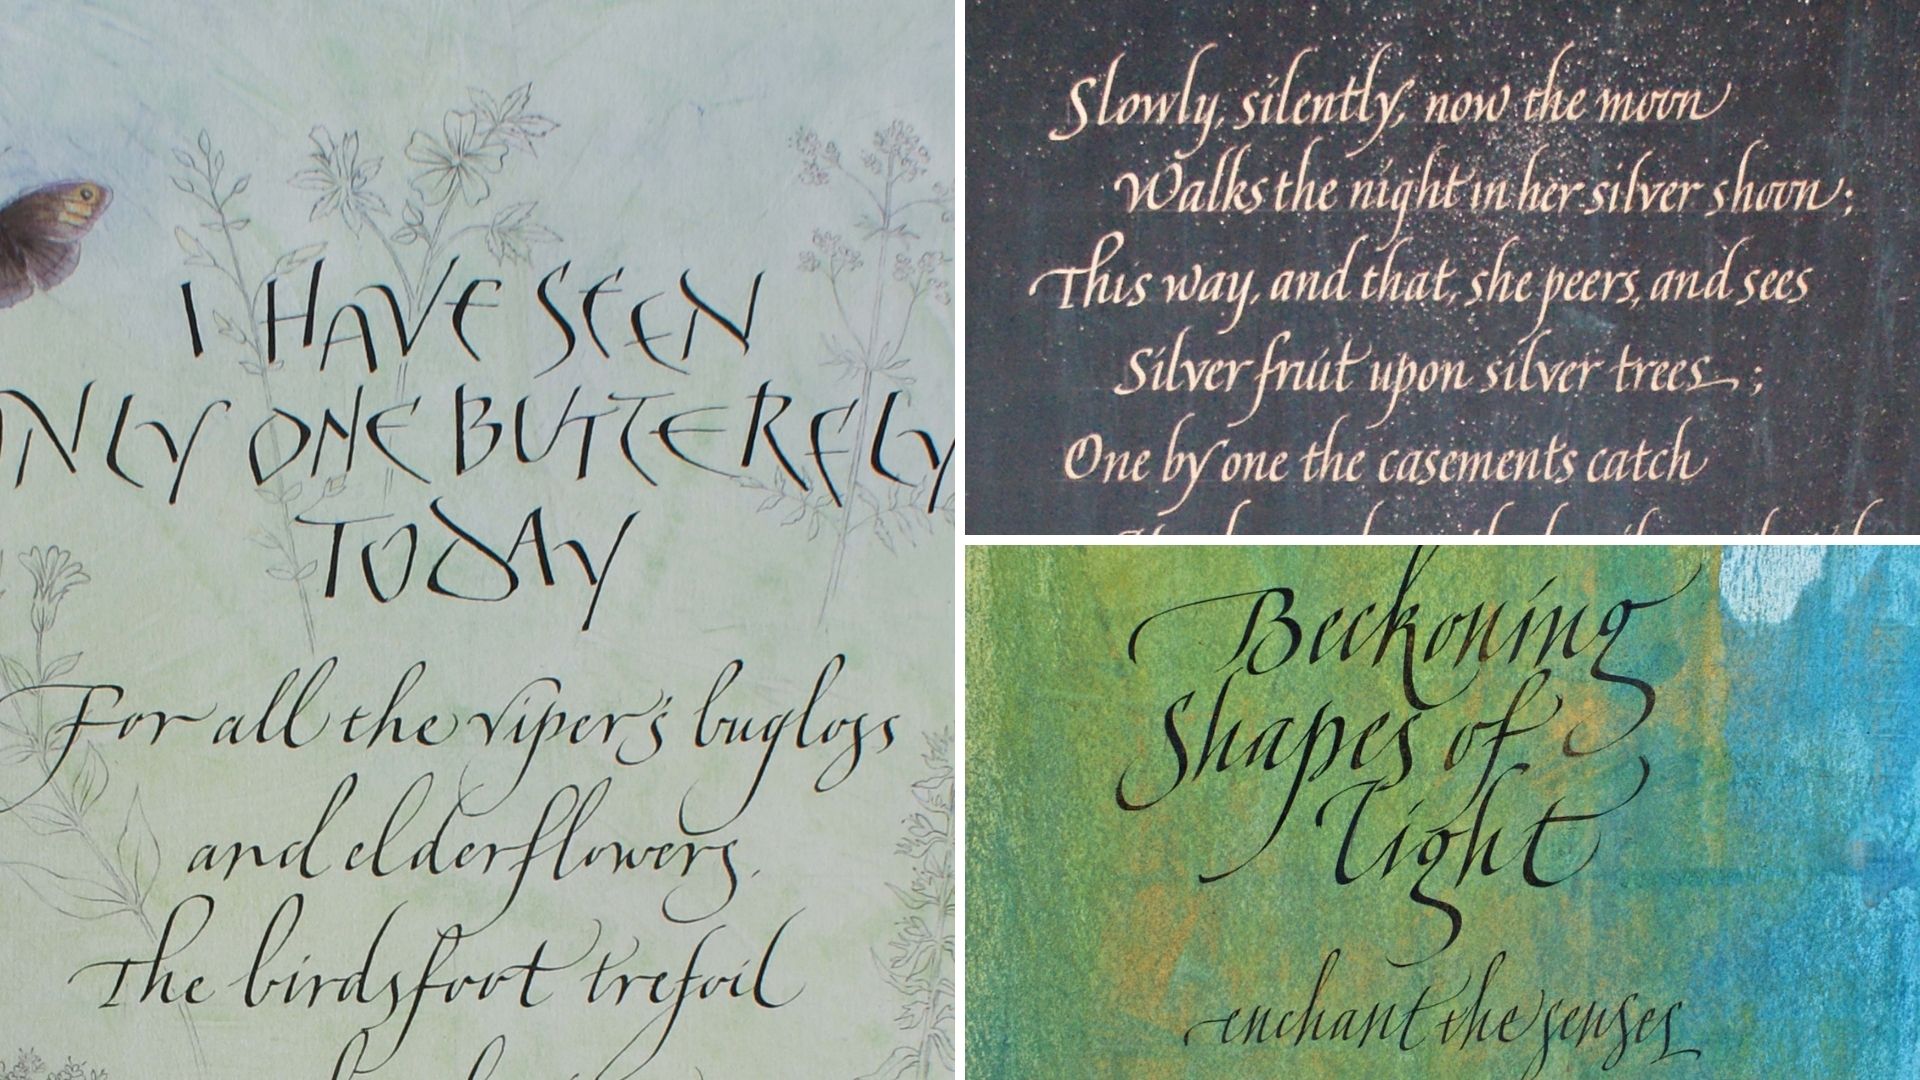 I HAVE SEEN
NLY ONE BUTTERFLY
TODAY
For all the viper's bugloss
and elderflowers.
The birdsfoot trefoil
Slowly, silently, now the moon
Walks the night in her silver shoon;
This way, and that, she peers, and sees
Silver fruit upon silver trees;
One by one the casements catch
Beckoning
Shapes of
Light
enchant the senses